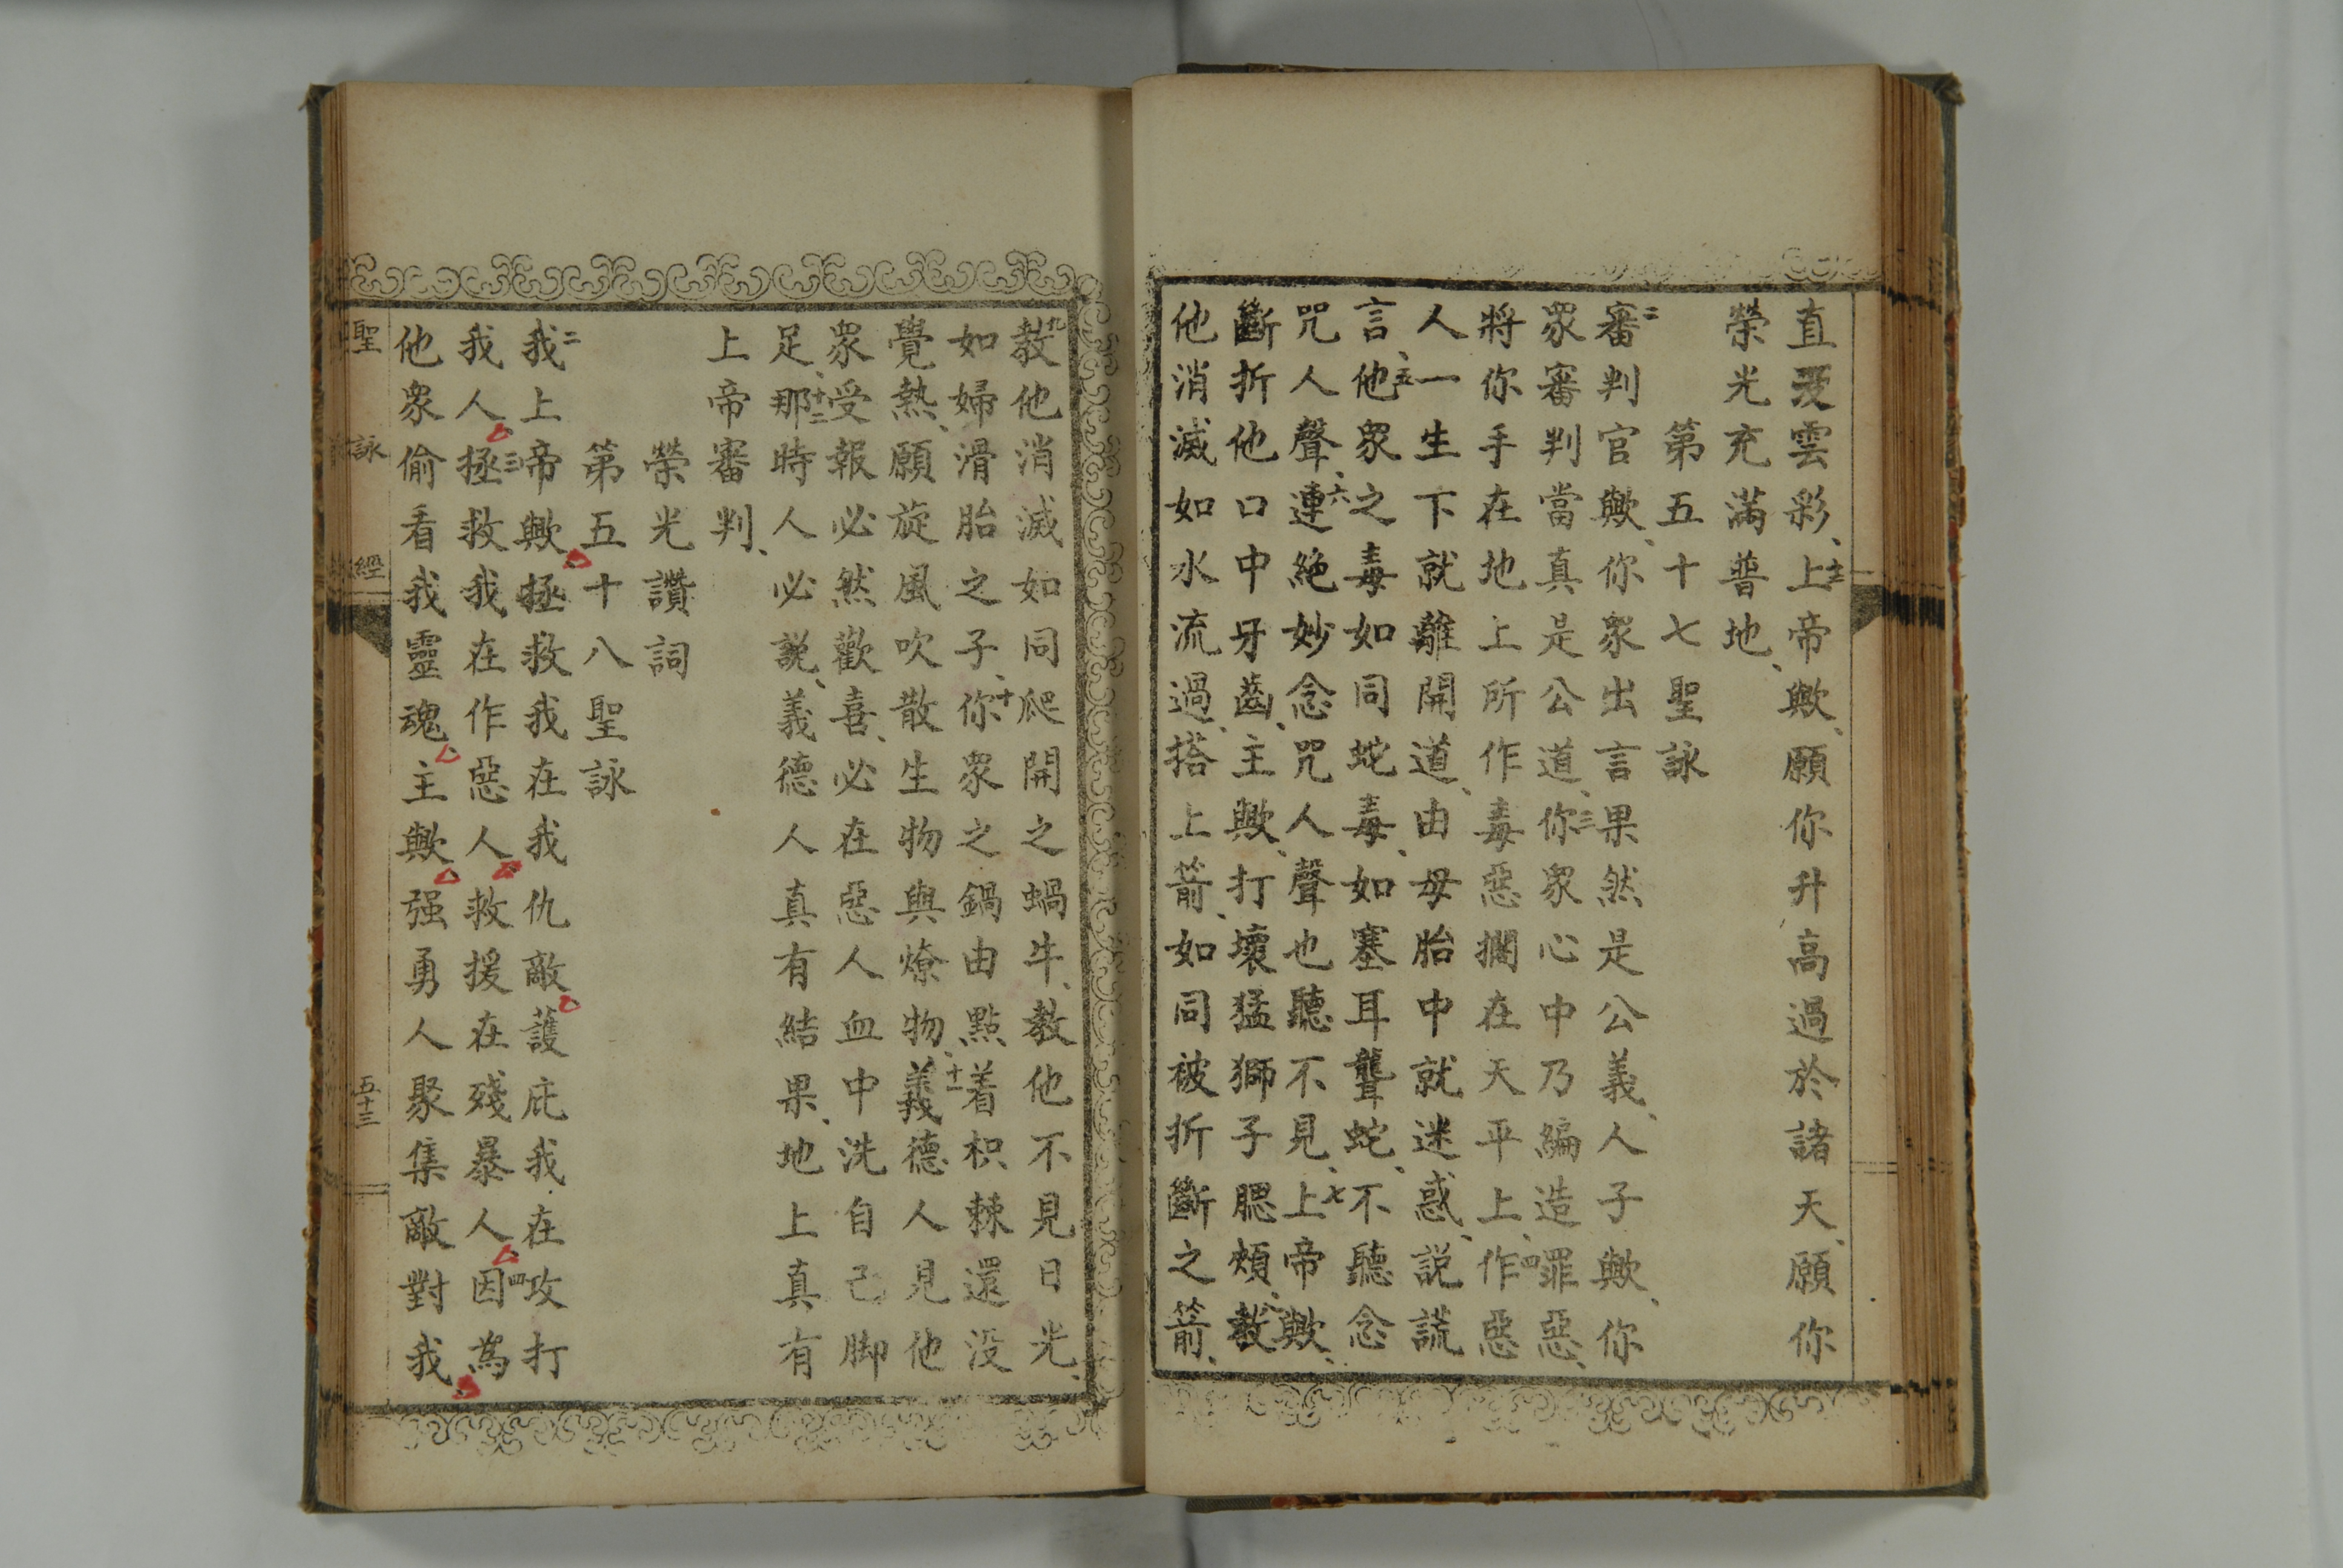 直没雲彩、十二上帝歟、願你升高過於諸天、願你
榮光充滿普地、
第五十七聖詠
二審判官歟、你衆出言果然是公義、人子歟、你
衆審判當真是公道、三你衆心中乃編造罪惡、
將你手在地上所作毒惡擱在天平上、四作惡
人一生下就離開道、由母胎中就迷惑、説謊
言、五他衆之毒如同蛇毒、如塞耳聾蛇、不聽念
咒人聲、六連絶妙念咒人聲也聽不見、七上帝歟、
斷折他口中牙齒、主歟、打壞猛獅子腮頰、教
他消滅如水流過、搭上箭、如同被折斷之箭、
九教他消滅如同爬開之蝸牛、教他不見日光、
如婦滑胎之子、十你衆之鍋由點着枳棘還没
覺熱、願旋風吹散生物與燎物、十一義德人見他
衆受報必然歡喜、必在惡人血中洗自己脚
足、十二那時人必説、義德人真有結果、地上真有
上帝審判、
榮光讚詞
第五十八聖詠
二我上帝歟拯救我在我仇敵護庇我在攻打
我人三拯救我在作惡人救援在殘暴人四因爲
他衆偷看我靈魂主歟强勇人聚集敵對我
聖詠經 五十三